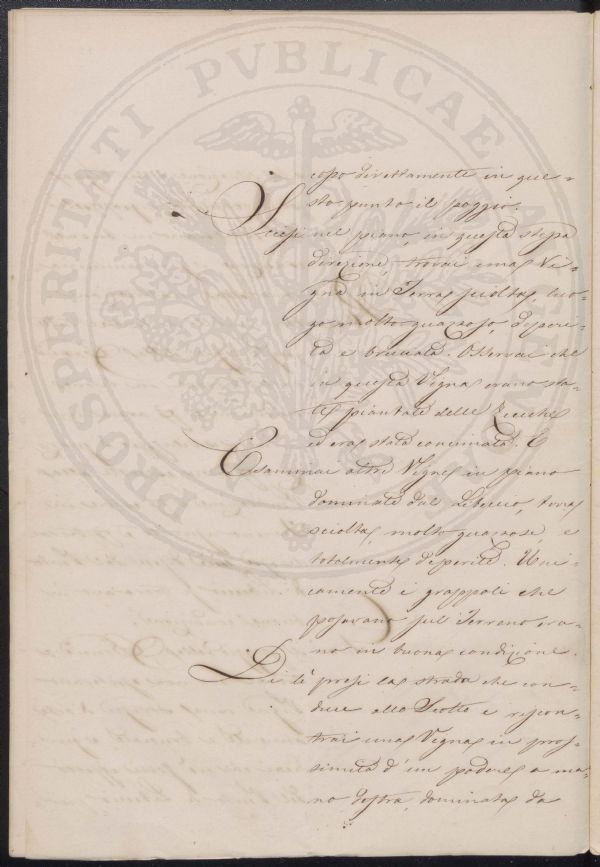 PROSPERITATI PVBLICAE
copo direttamente in que-
sto punto il poggio.
Scesi nel piano, in questa stessa
direzione, trovai una Vi-
gna in Terra sciolta, luo-
go molto guazzoso, deperi-
ta e bruciata. Osservai che
in questa Vigna erano sta-
te piantate delle
ed era stata concimata. E
Esaminai altre Vigne in piano
dominate dal Libeccio, terra
sciolta, molto guazzose, e
totalmente deperite. Uni-
camente i grappoli che
posavano sul Terreno era-
no in buona condizione.
Di lì presi la strada che con-
duce allo Scotto e riscon-
trai una Vigna in pros-
simità d'un podere a ma-
no destra, dominata da